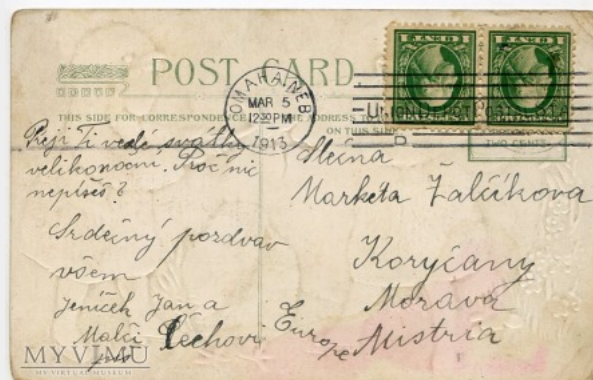 POST CARD
THIS SIDE FOR CORRESPONDENCE
THE ADDRESS
ON THIS SIDE
OMAHA, NEB.
MAR 5
12 30 PM
1913
TWO CENTS
Přeji Ti veselé svátky
velikonoční. Proč nic
nepíšeš?
Srdečný pozdrav
všem
Jeníček Jan a
Malči Čechovi
Slečna
Markéta Žalčíkova
Koryčany
Morava
Europe Austria
MYVIMU
MY VIRTUAL MUSEUM